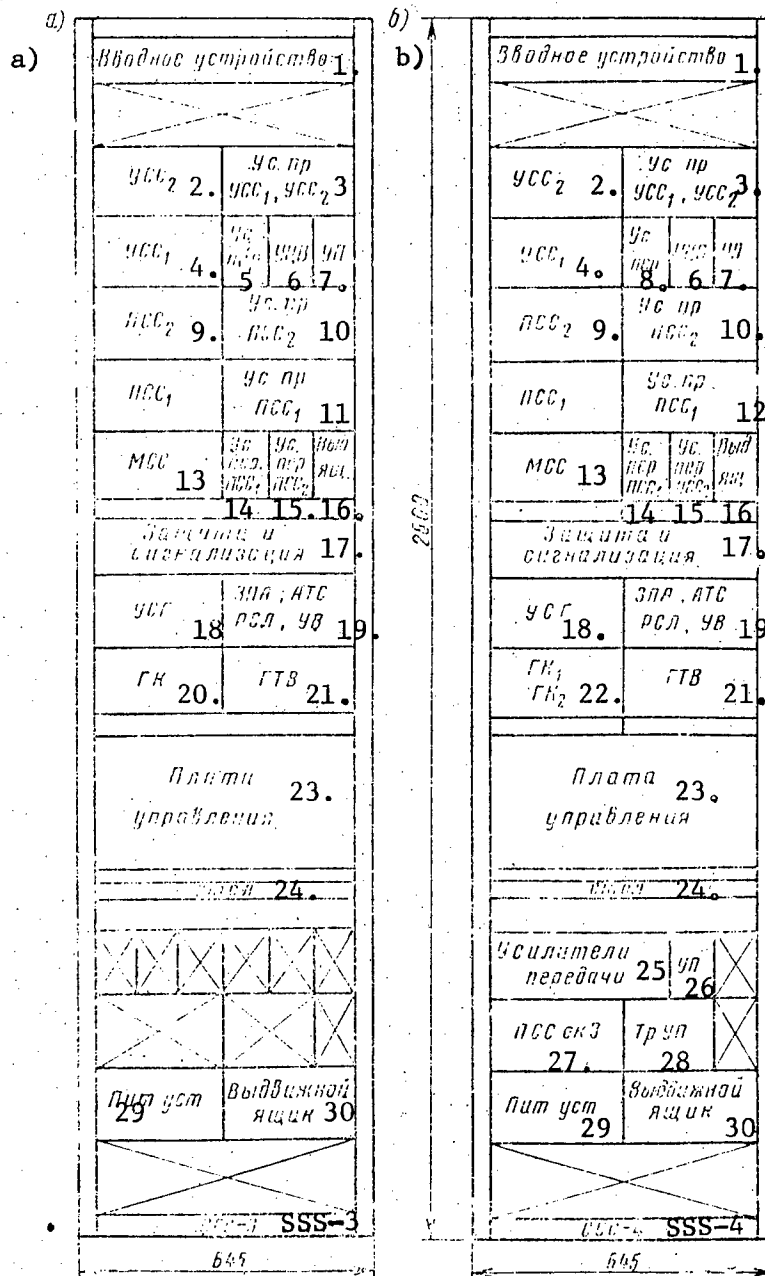 а)
a)
Вводное устройство 1.
УСС₂ 2.
Ус. пр
УСС₁, УСС₂ 3
УСС₁ 4.
Ус
5
6
УП
7.
ПСС₂ 9.
Ус. пр
ПСС₂ 10
ПСС₁
Ус пр
ПСС₁ 11
МСС 13
Ус.
пер.
ПСС₁
14
Ус.
пер
ПСС₂
15.
Выд
ящ.
16.
Защита и
сигнализация 17.
УСГ 18
ЗПА, АТС
РСЛ, УВ 19.
ГК 20.
ГТВ 21.
Плата
управления 23.
24.
Пит уст
29
Выдвижной
ящик 30
ССС-3 SSS-3
645
б)
b)
2600
Вводное устройство 1.
УСС₂ 2.
Ус пр
УСС₁, УСС₂ 3.
УСС₁ 4.
Ус
пер
8.
6
7.
ПСС₂ 9.
Ус пр
ПСС₂ 10.
ПСС₁
Ус. пр.
ПСС₁ 12
МСС 13
Ус
пер
ПСС₁
14
Ус.
пер
15
Выд
ящ
16
Защита и
сигнализация 17.
УСГ 18.
ЗПА, АТС
РСЛ, УВ 19
ГК₁
ГК₂ 22.
ГТВ 21.
Плата
управления 23.
24.
Усилители
передачи 25
УП
26
ПСС окЗ
27.
Тр УП
28
Пит уст
29
Выдвижной
ящик
30
ССС-4 SSS-4
645